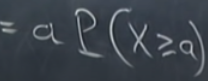 = a P(X ≥ a)